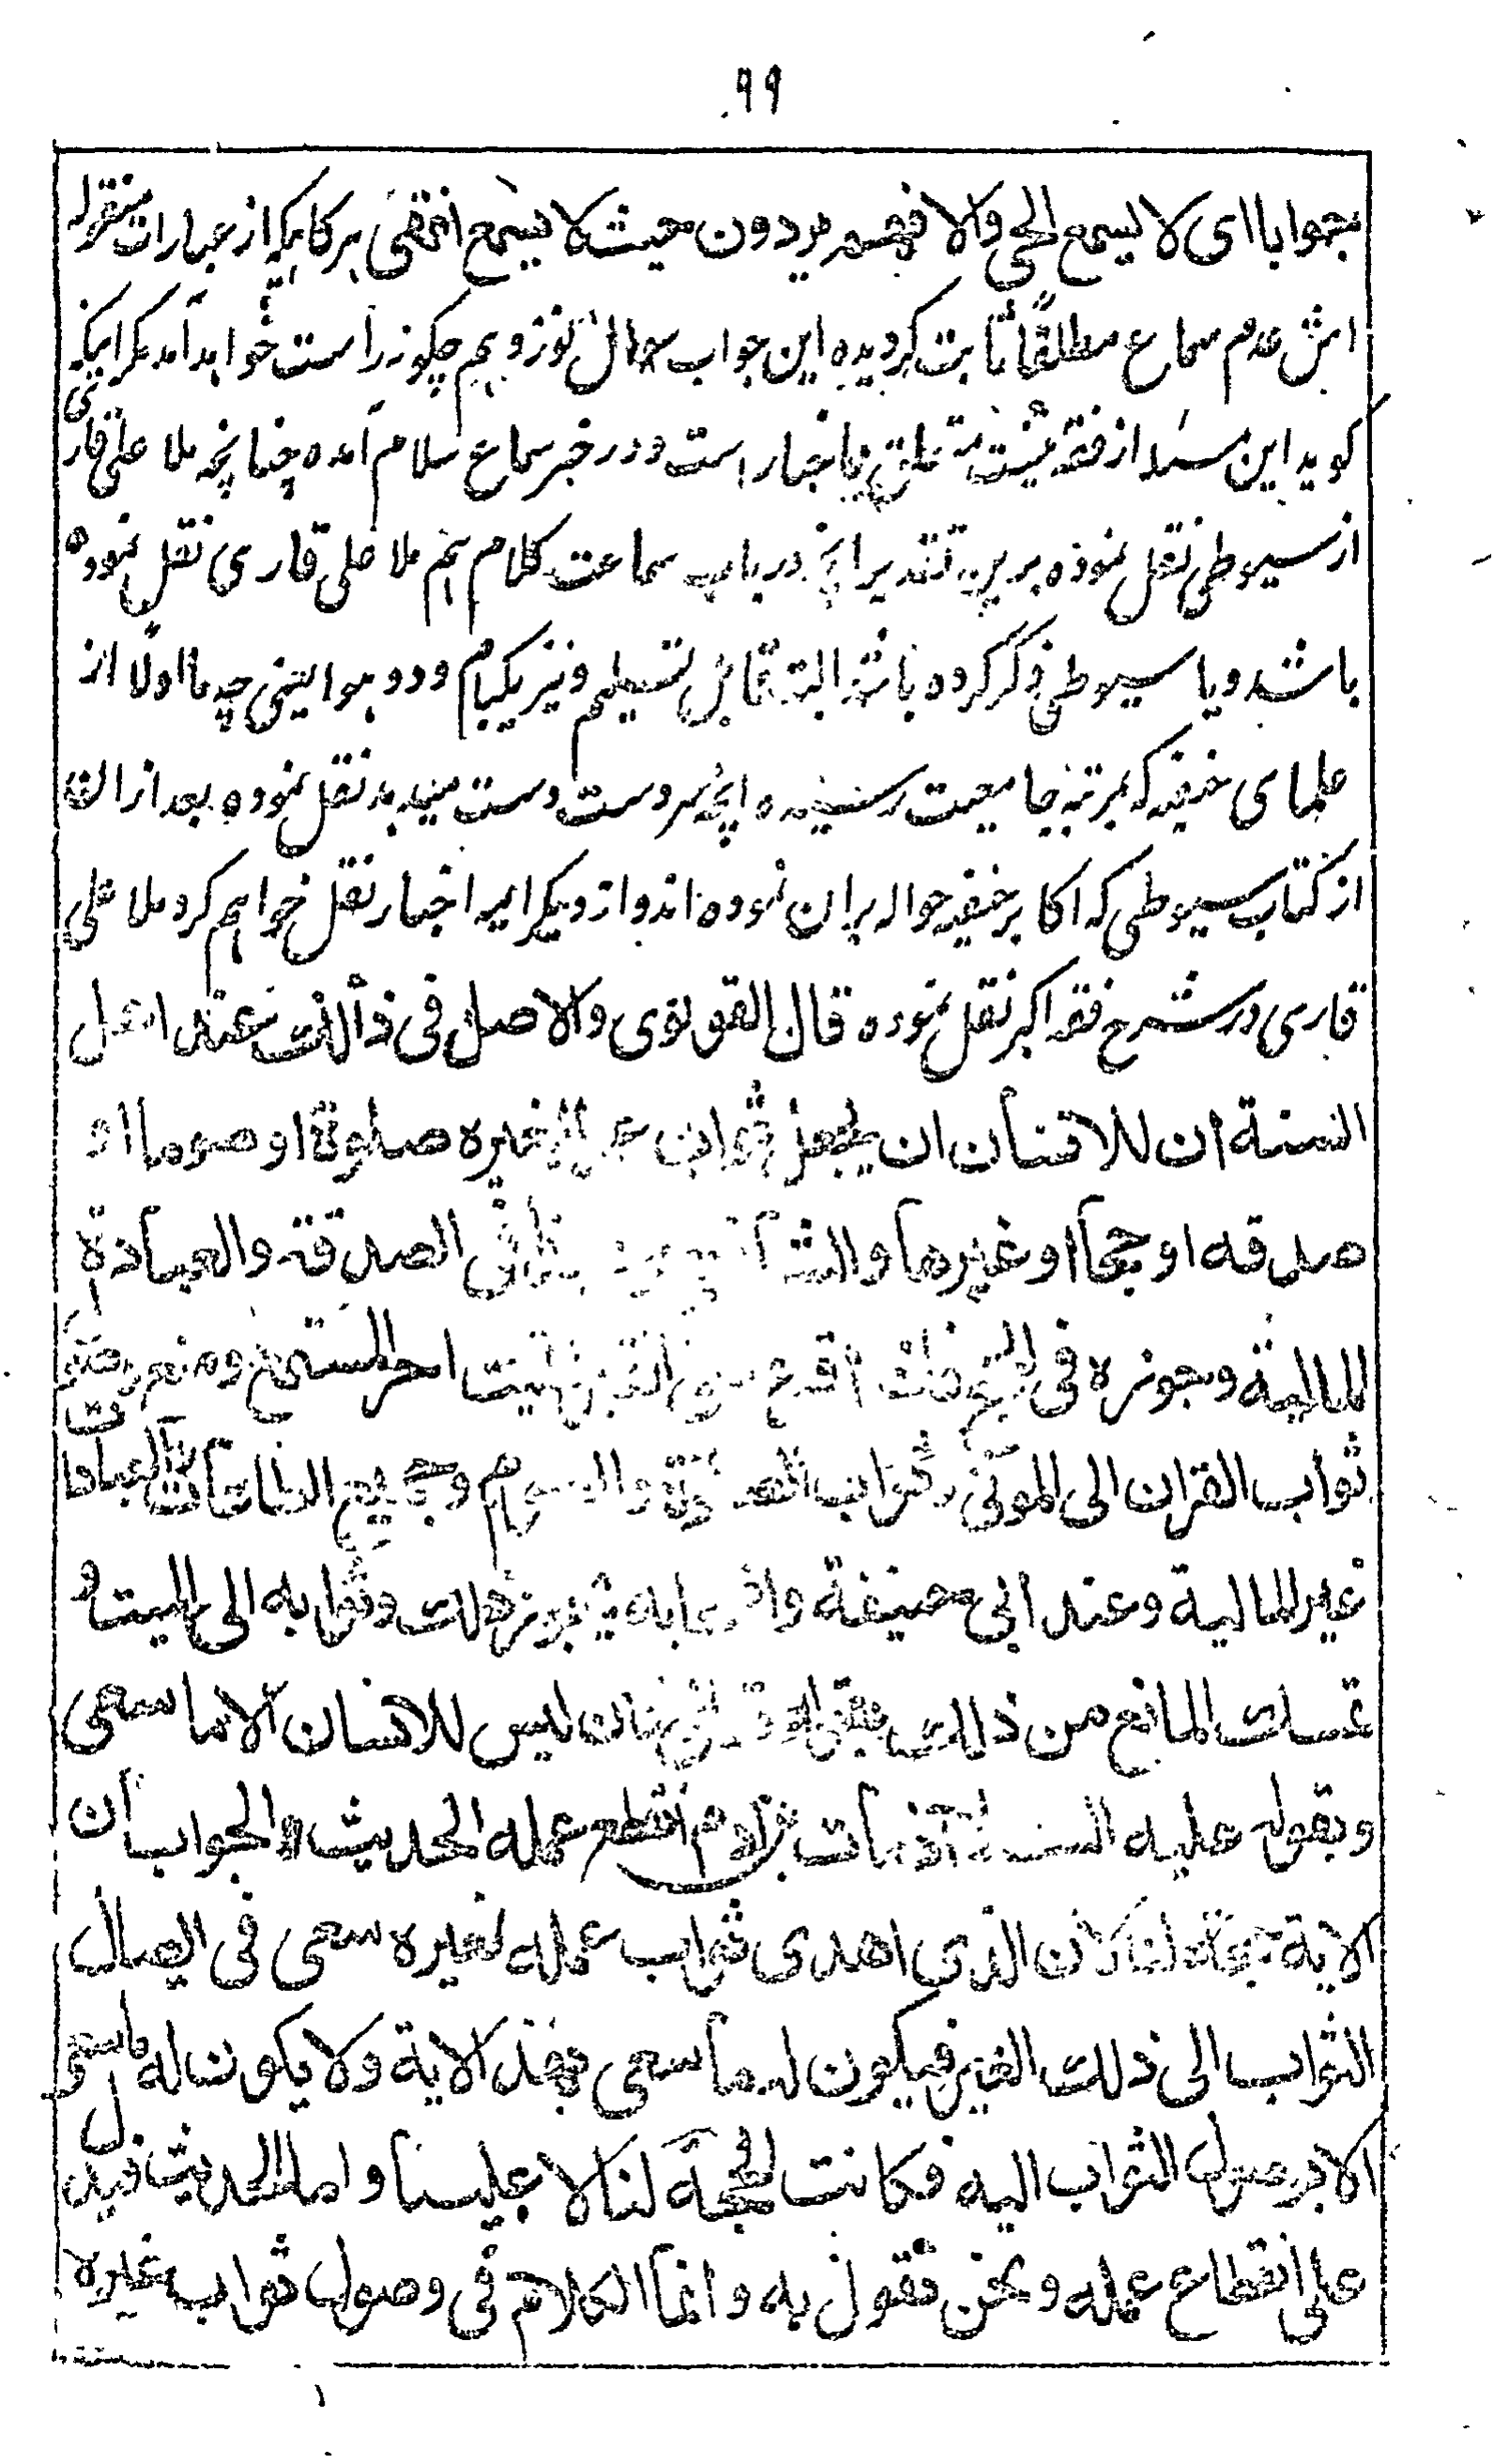 ٩٩
جوابا ای لا یسمع الحی والا فهم یردون حیث لا یسمع انتهی هرگاه که از عبارات منقوله
اش عدم سماع مطلقاً ثابت گردیده این جواب سوال نوزدهم چگونه راست خواهد آمد مگر اینکه
گوید این مسئله از فقه نیست متعلق باخبار است و در خبر سماع سلام آمده چنانچه ملا علی قاری
از سیوطی نقل نموده برین تقدیر انچه در باب سماعت کلام هم ملا علی قاری نقل نموده
باشد و یا سیوطی ذکر کرده باشد البته قابل تسلیم و نیز یکبام و دو هوا یعنی چه ما اولا از
علمای حنفیه که بمرتبه جامعیت رسیده انچه سردست دست میدهد نقل نموده بعد ازان
از کتاب سیوطی که اکابر حنفیه حواله بران نموده اند و از دیگر ایمه اخبار نقل خواهم کرد ملا علی
قاری در شرح فقه اکبر نقل نموده قال القونوی والاصل فی ذالک عند اهل
السنة ان للانسان ان یجعل ثواب عمله لغیره صلوة او صوما او
صدقه او حجا او غیرها والشافعی الصدقة والعبادة
المالیة وجوزه فی الحج القبر للمیت اجر المستمع ومنع وصول
ثواب القران الی الموتی وثواب الصلوة والصوم وجمیع الطاعات والعبادات
غیر المالیة وعند ابی حنیفة واصحابه یجوز ذلک وثوابه الی المیت و
تمسک المانع من ذلک بقوله تعالی وان لیس للانسان الا ما سعی
وبقوله علیه السلام اذا مات ابن ادم انقطع عمله الحدیث والجواب ان
الایة حجة لنا لان الذی اهدی ثواب عمله لغیره سعی فی ایصال
الثواب الی ذلک الغیر فیکون له ما سعی بهذه الایة ولا یکون له ما سعی
الا بوصول الثواب الیه فکانت الحجة لنا لا علینا واما الحدیث فیدل
علی انقطاع عمله ونحن نقول به وانما الکلام فی وصول ثواب غیره